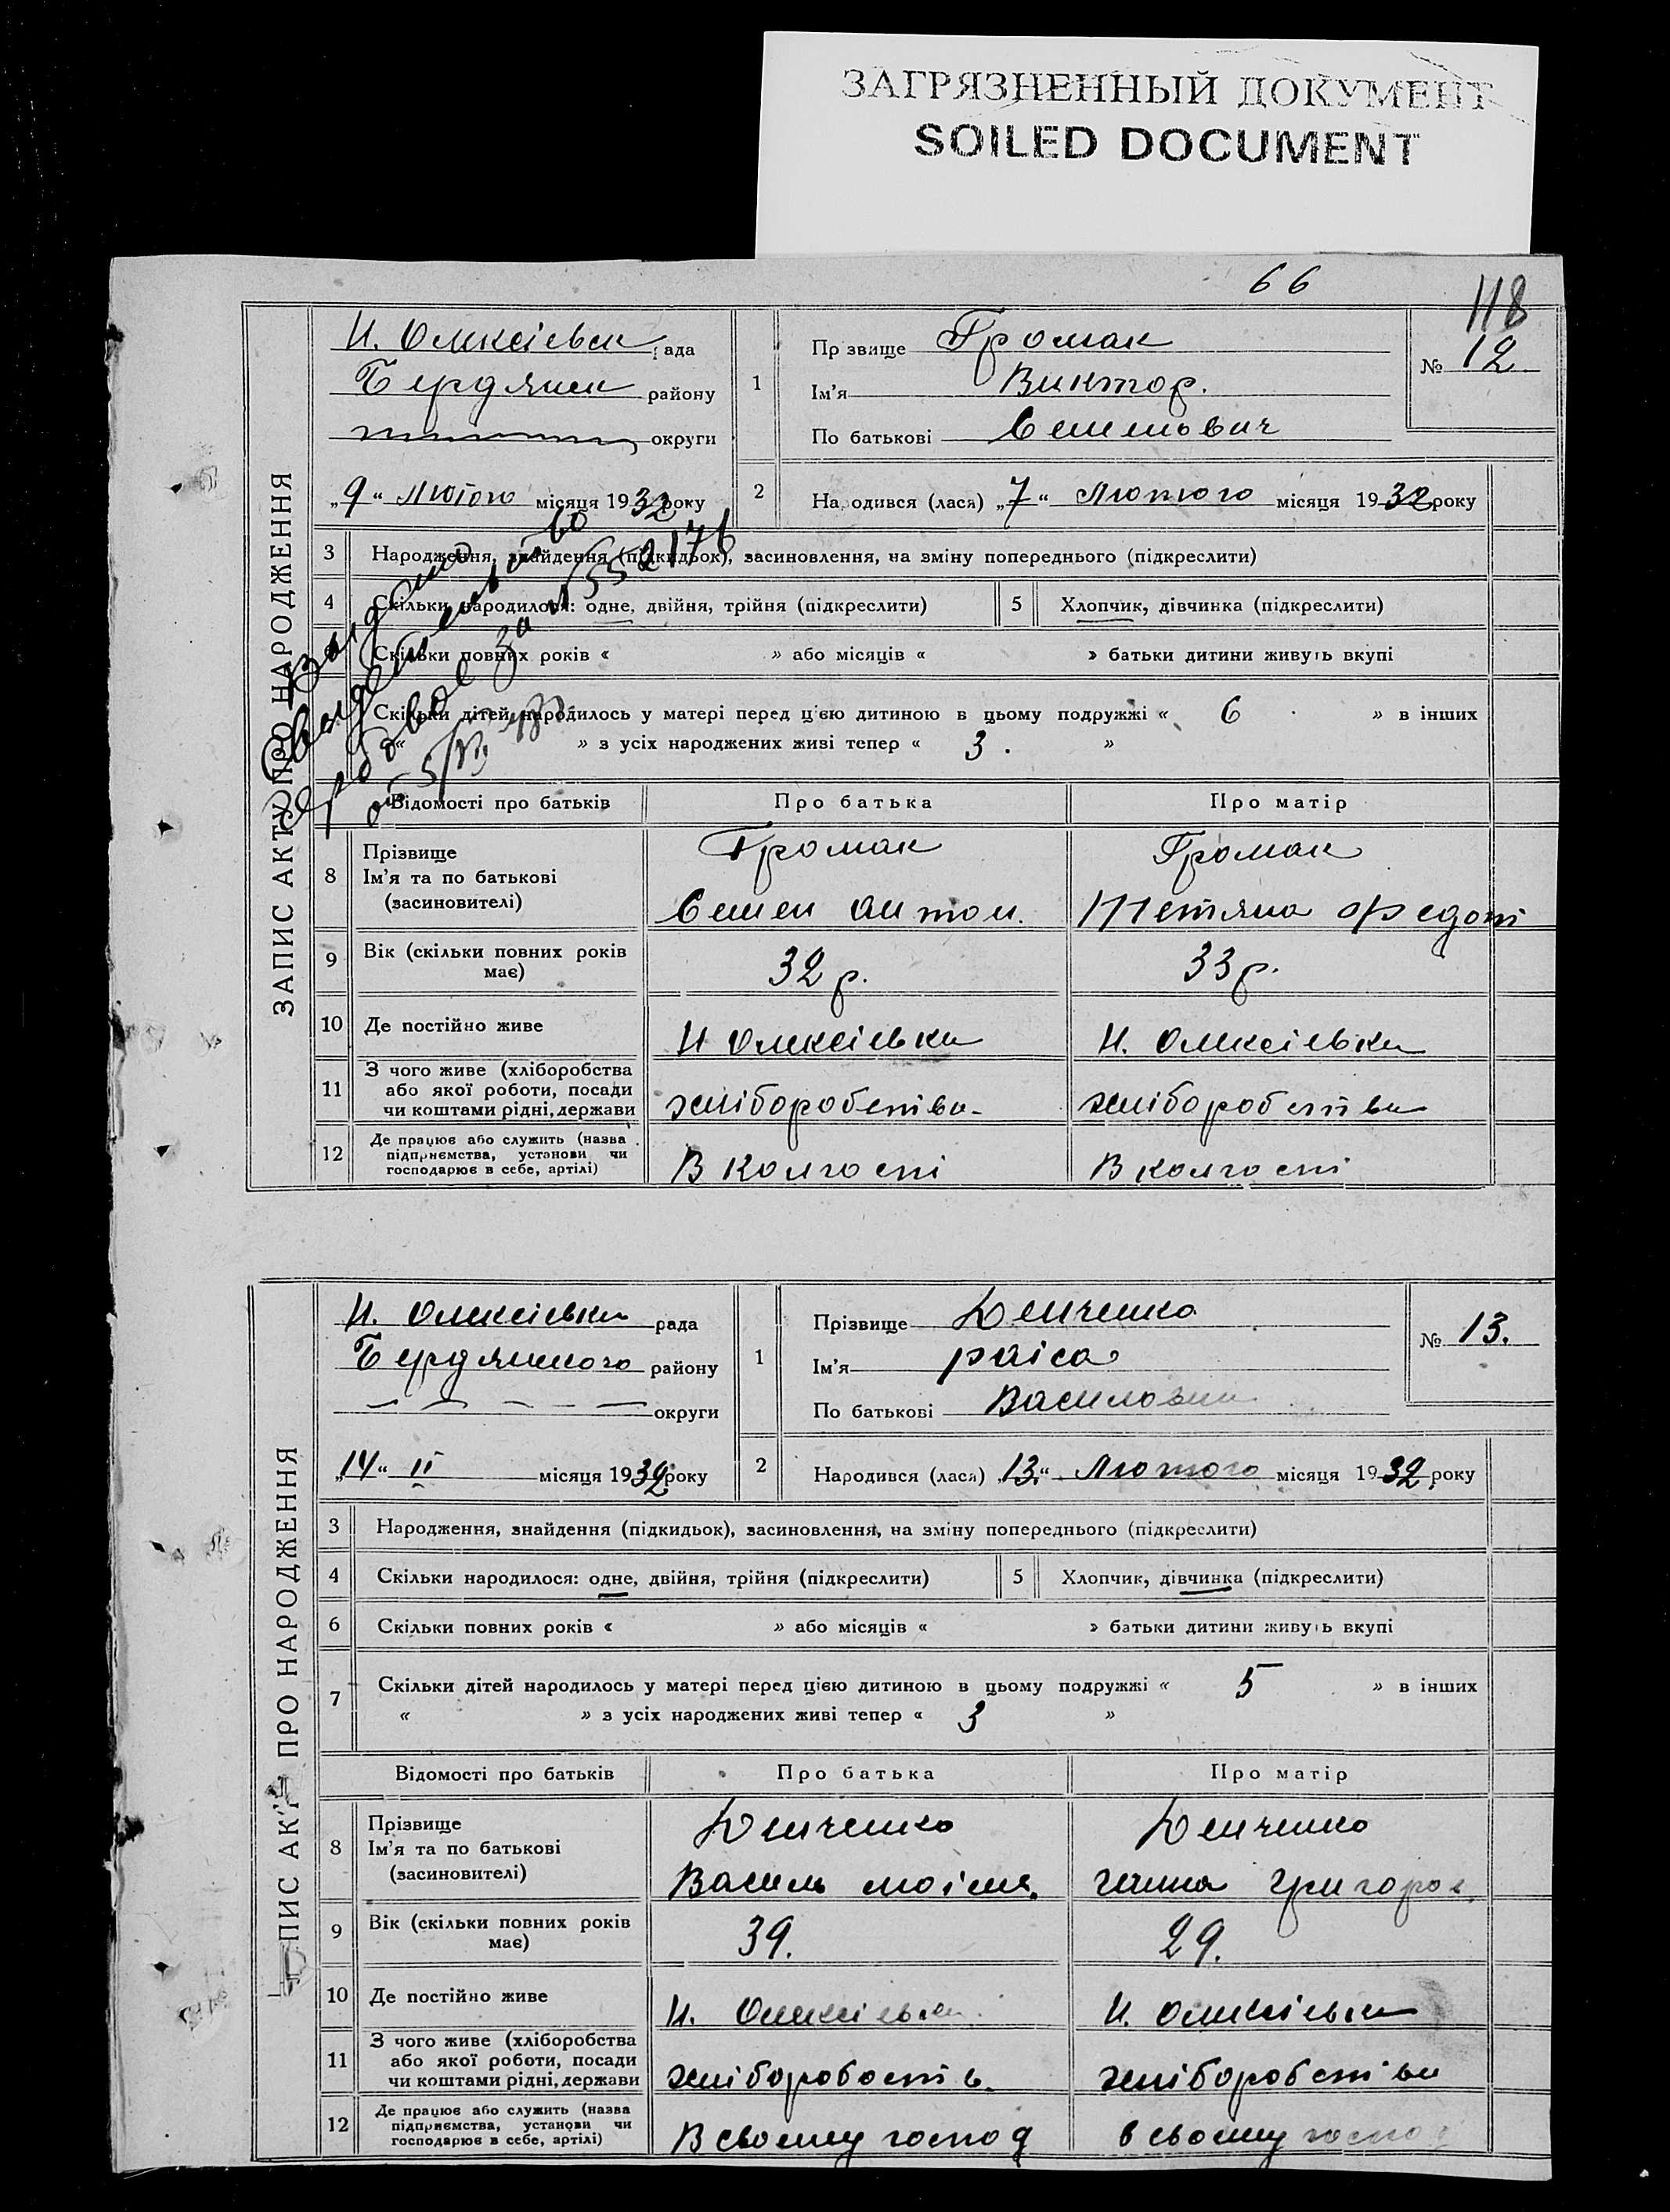 ЗАГРЯЗНЕННЫЙ ДОКУМЕНТ
SOILED DOCUMENT
66
118
ЗАПИС АКТУ ПРО НАРОДЖЕННЯ
Н. Олексіевск рада
Бердянск району
округи
„9“ Лютого місяця 1932 року
1
Прізвище Громак
Ім’я Виктор.
По батькові Семенович
№ 12
2 Народився (лася) „7“ Лютого місяця 1932 року
3 Народження, знайдення (підкидьок), засиновлення, на зміну попереднього (підкреслити)
4 Скільки народилося: одне, двійня, трійня (підкреслити)
5 Хлопчик, дівчинка (підкреслити)
Скільки повних років « » або місяців « » батьки дитини живуть вкупі
Скільки дітей народилось у матері перед цією дитиною в цьому подружжі « 6 » в інших
« » з усіх народжених живі тепер « 3. »
свидетельство
за № 552176
Відомості про батьків Про батька Про матір
8 Прізвище
Ім’я та по батькові
(засиновителі)
Громак
Семен Антон.
Громак
Тетяна Федот
9 Вік (скільки повних років має) 32 р. 33 р.
10 Де постійно живе Н Олексіевка Н. Олексіевка
11 З чого живе (хліборобства
або якої роботи, посади
чи коштами рідні, держави
хліборобства хліборобства
12 Де працює або служить (назва
підприємства, установи чи
господарює в себе, артілі)
В колгоспі В колгоспі
ПИС АКТ ПРО НАРОДЖЕННЯ
Н. Олексіевка рада
Бердянського району
округи
„14“ II місяця 1932 року
1
Прізвище Демченко
Ім’я раіса
По батькові Василовна
№ 13.
2 Народився (лася) „13.“ Лютого місяця 1932 року
3 Народження, знайдення (підкидьок), засиновлення, на зміну попереднього (підкреслити)
4 Скільки народилося: одне, двійня, трійня (підкреслити)
5 Хлопчик, дівчинка (підкреслити)
6 Скільки повних років « » або місяців « » батьки дитини живуть вкупі
7 Скільки дітей народилось у матері перед цією дитиною в цьому подружжі « 5 » в інших
« » з усіх народжених живі тепер « 3 »
Відомості про батьків Про батька Про матір
8 Прізвище
Ім’я та по батькові
(засиновителі)
Демченко
Василь моісев.
Демченко
ганна григоров.
9 Вік (скільки повних років має) 39. 29.
10 Де постійно живе Н. Олексіевка Н. Олексіевка
11 З чого живе (хліборобства
або якої роботи, посади
чи коштами рідні, держави
хліборобоств. хліборобства
12 Де працює або служить (назва
підприємства, установи чи
господарює в себе, артілі)
В своєму господ в своєму господ